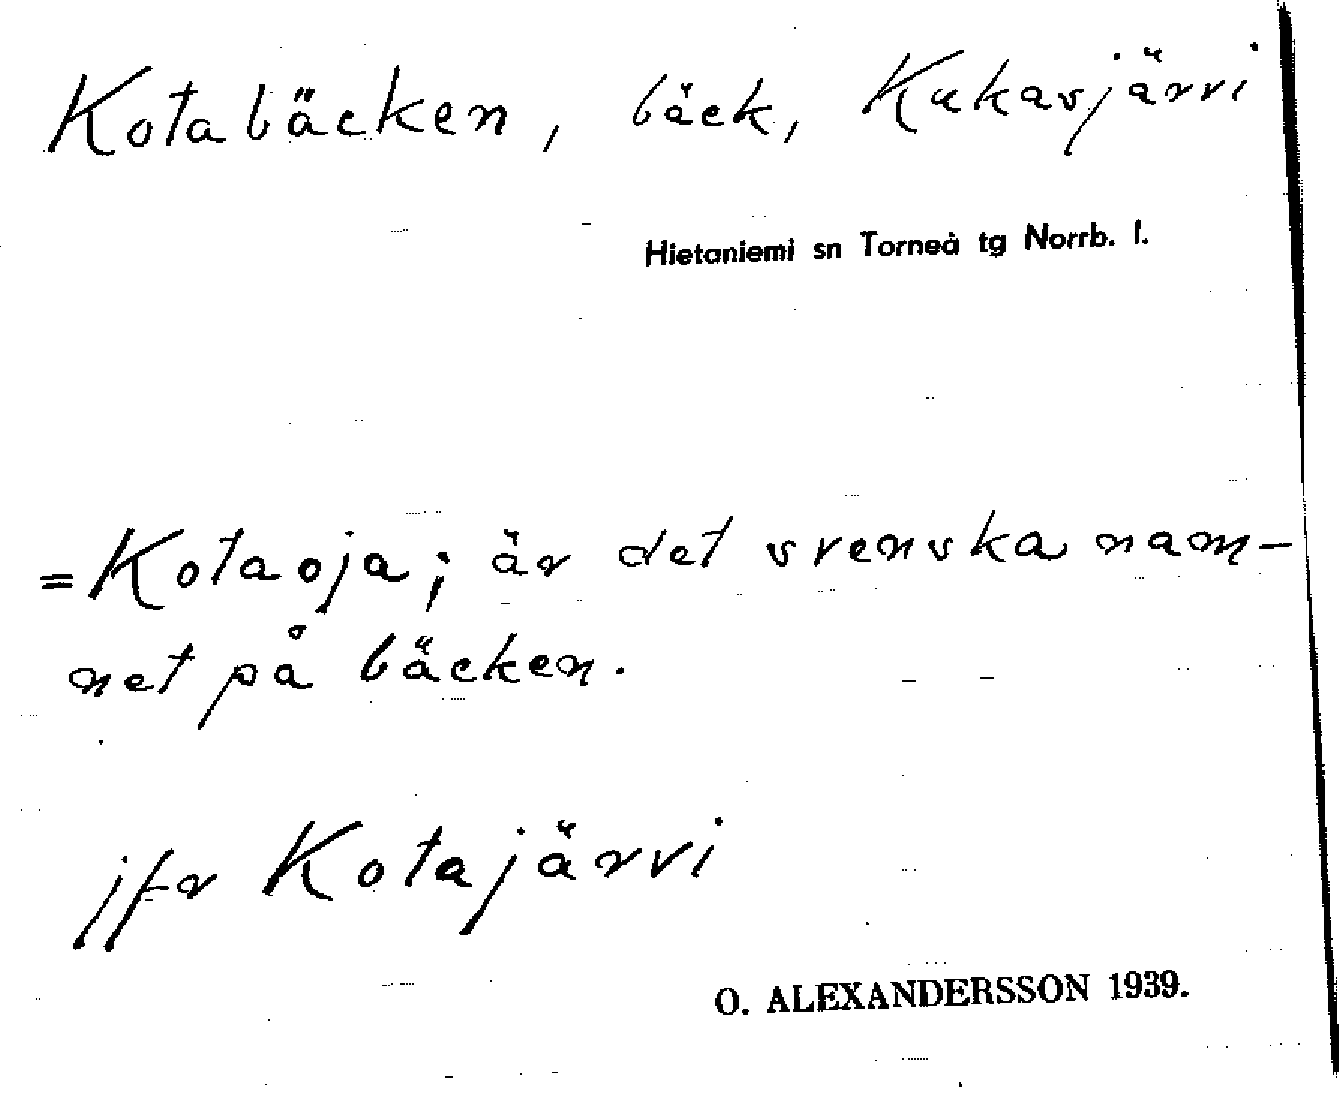 Kotabäcken, bäck, Kukasjärvi
Hietaniemi sn Torneå tg Norrb. l.
=Kotaoja; är det svenska nam-
net på bäcken.
jfr Kotajärvi
O. ALEXANDERSSON 1939.